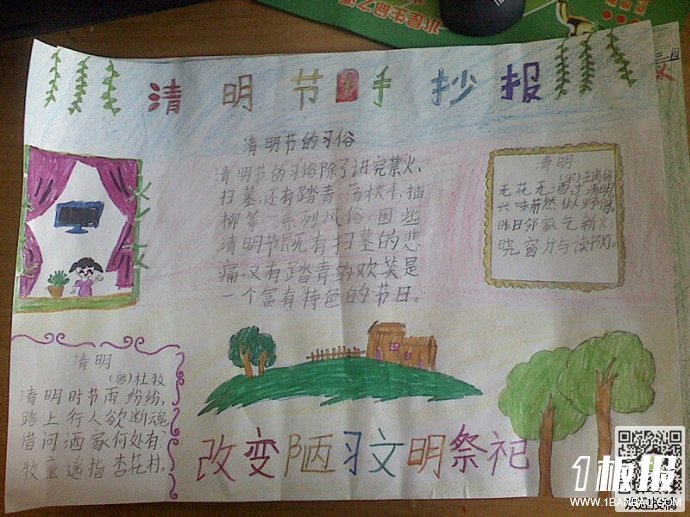 清明节手抄报
清明节的习俗
清明节的习俗除了讲究禁火、
扫墓,还有踏青、荡秋千、插
柳等一系列风俗,因此
清明节既有扫墓的悲
痛,又有踏青的欢笑是
一个富有特色的节日。
清明
无花无酒过清明
兴味萧然似野僧。
昨日邻家乞新火,
晓窗分与读书灯。
清明
(唐)杜牧
清明时节雨纷纷,
路上行人欲断魂
借问酒家何处有?
牧童遥指杏花村。
改变陋习文明祭祀
1板报
WWW.1BANBAO.COM